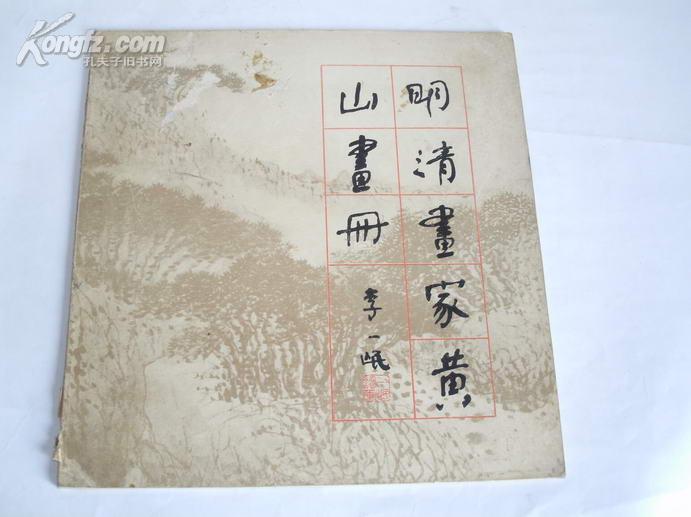 明清畫家黄
山畫册
李一氓
Kongfz.com
孔夫子旧书网